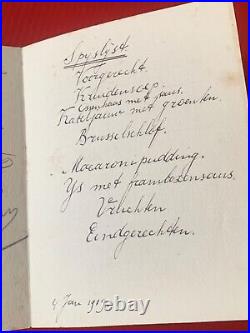 Spyslyst.
Voorgerecht.
Kruidensoep.
met saus.
Kabeljauw met groenten.
Brusselschlof.
Macaronipudding.
Ys met frambozensaus.
Vruchten
Eindgerechten.
4 Jan